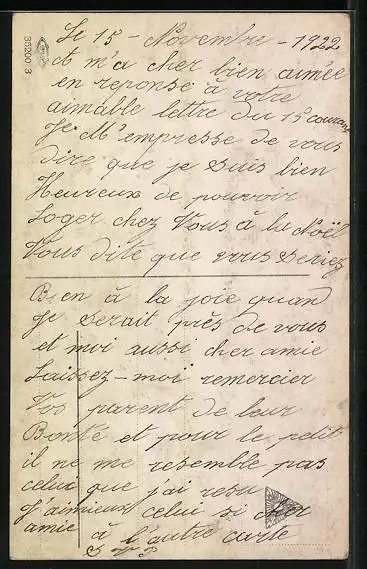 35200/3
Le 15 - Novembre - 1922
et m'a cher bien aimée
en reponse à votre
aimable lettre du 15 courant
Je M'empresse de vous
dire que je Suis bien
Heureux de pouvoir
Loger chez Vous à la Noël
Vous dite que vous Seriez
Bien à la joie quand
Je Serait près de vous
et moi aussi cher amie
Laissez-moi remercier
Vos parent de leur
Bonté et pour le petit
il ne me resemble pas
celui que j'ai resu
J'aimieux celui si cher
amie à l'autre carte
S V P